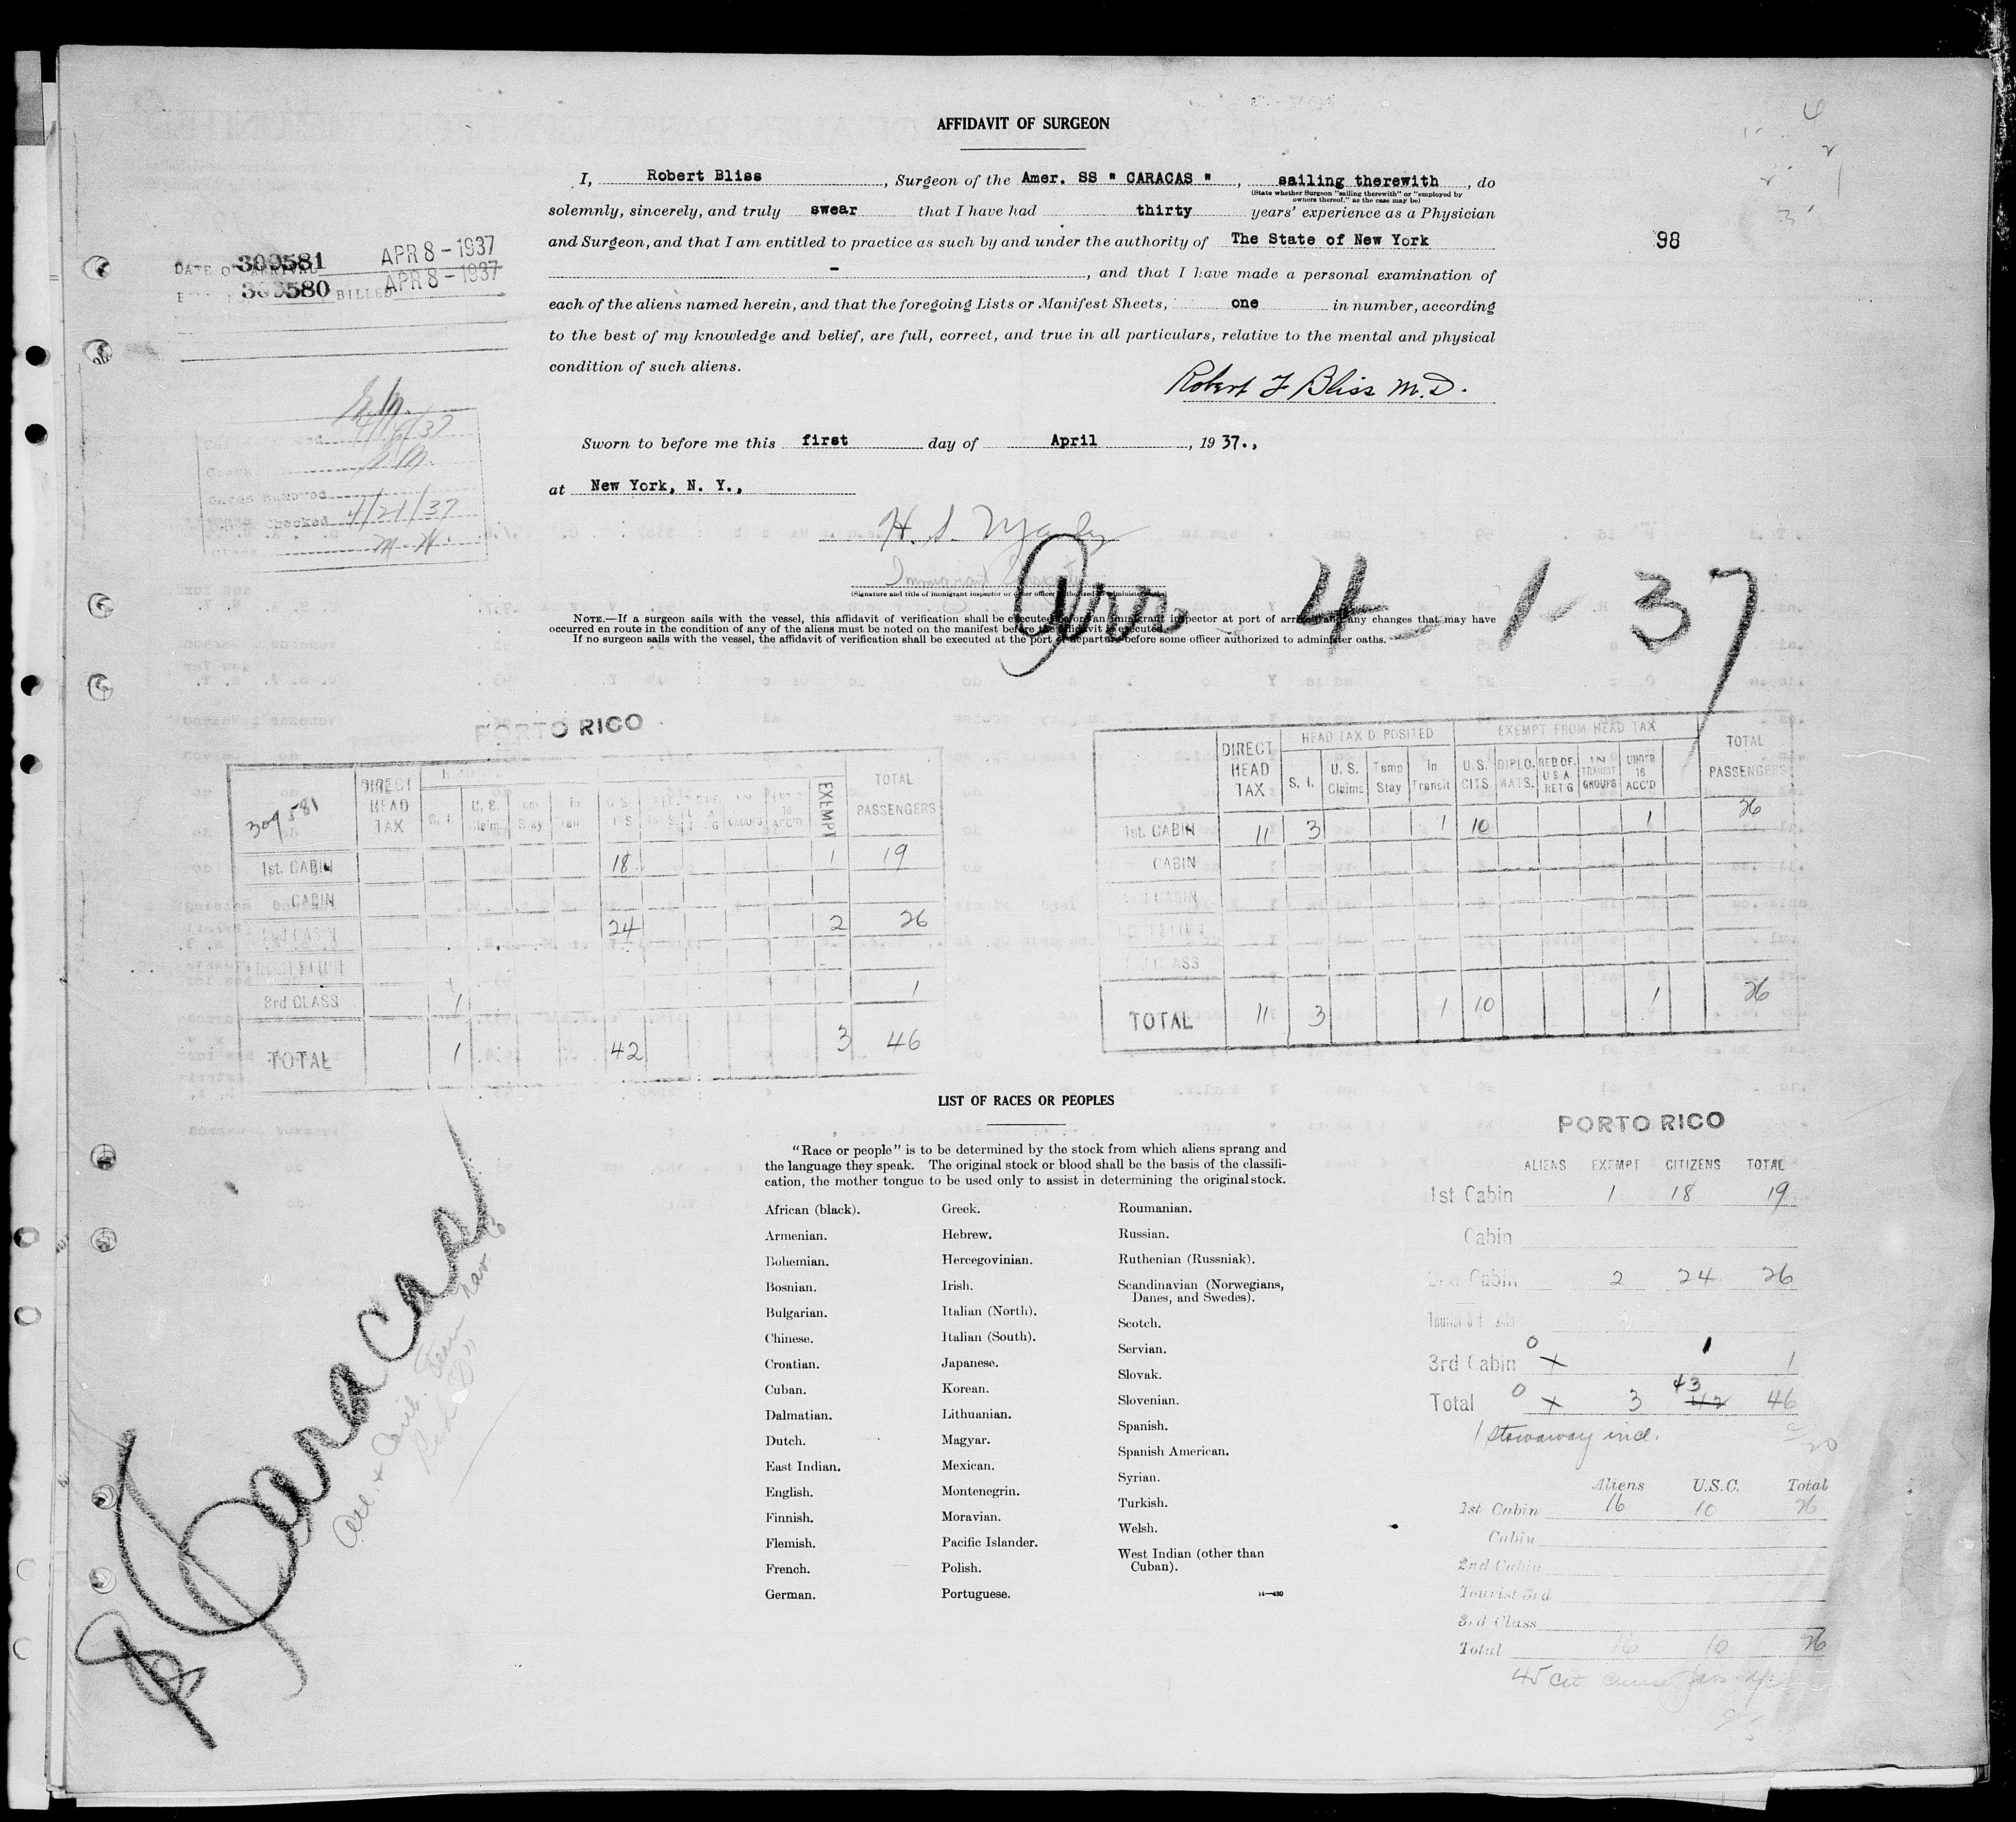 AFFIDAVIT OF SURGEON
I, Robert Bliss, Surgeon of the Amer. SS " CARACAS ", sailing therewith, do
(State whether Surgeon "sailing therewith" or "employed by
owners thereof," as the case may be)
solemnly, sincerely, and truly swear that I have had thirty years' experience as a Physician
and Surgeon, and that I am entitled to practice as such by and under the authority of The State of New York
98
-, and that I have made a personal examination of
each of the aliens named herein, and that the foregoing Lists or Manifest Sheets, one in number, according
to the best of my knowledge and belief, are full, correct, and true in all particulars, relative to the mental and physical
condition of such aliens.
Robert F Bliss M.D.
DATE OF ARRIVAL 309581 APR 8 - 1937
309580 BILLED APR 8 - 1937
4/16/37
Cards Removed
Checked 4/21/37
M.H.
Sworn to before me this first day of April, 1937.,
at New York, N. Y.,
H. S.
(Signature and title of immigrant inspector or other officer authorized to administer oaths)
Arr 4-1-37
NOTE.—If a surgeon sails with the vessel, this affidavit of verification shall be executed before an immigrant inspector at port of arrival and any changes that may have
occurred en route in the condition of any of the aliens must be noted on the manifest before the affidavit is executed.
If no surgeon sails with the vessel, the affidavit of verification shall be executed at the port of departure before some officer authorized to administer oaths.
PORTO RICO
309581 DIRECT HEAD TAX S. I. U. S. Claims EXEMPT TOTAL PASSENGERS
1st. CABIN 18 1 19
CABIN
2nd CABIN 24 2 26
3rd CLASS 1 1
TOTAL 1 42 3 46
DIRECT HEAD TAX HEAD TAX DEPOSITED EXEMPT FROM HEAD TAX TOTAL PASSENGERS
S. I. U. S. Claims Temp Stay In Transit U.S. CITS. DIPLOMATS. RES OF. U.S.A. RET'G IN TRANSIT GROUPS UNDER 16 ACC'D
1st. CABIN 11 3 1 10 1 26
CABIN
2nd CABIN
3rd CLASS
TOTAL 11 3 1 10 1 26
LIST OF RACES OR PEOPLES
"Race or people" is to be determined by the stock from which aliens sprang and
the language they speak. The original stock or blood shall be the basis of the classifi-
cation, the mother tongue to be used only to assist in determining the original stock.
African (black).
Armenian.
Bohemian.
Bosnian.
Bulgarian.
Chinese.
Croatian.
Cuban.
Dalmatian.
Dutch.
East Indian.
English.
Finnish.
Flemish.
French.
German.
Greek.
Hebrew.
Hercegovinian.
Irish.
Italian (North).
Italian (South).
Japanese.
Korean.
Lithuanian.
Magyar.
Mexican.
Montenegrin.
Moravian.
Pacific Islander.
Polish.
Portuguese.
Roumanian.
Russian.
Ruthenian (Russniak).
Scandinavian (Norwegians,
Danes, and Swedes).
Scotch.
Servian.
Slovak.
Slovenian.
Spanish.
Spanish American.
Syrian.
Turkish.
Welsh.
West Indian (other than
Cuban).
14—430
Caracas
PORTO RICO
ALIENS EXEMPT CITIZENS TOTAL
1st Cabin 1 18 19
Cabin
2nd Cabin 2 24 26
3rd Cabin 0 x 1 1
Total 0 x 3 43 42 46
1 Stowaway incl.
Aliens U.S.C. Total
1st Cabin 16 10 26
Cabin
2nd Cabin
Tourist 3rd
3rd Class
Total 16 10 26